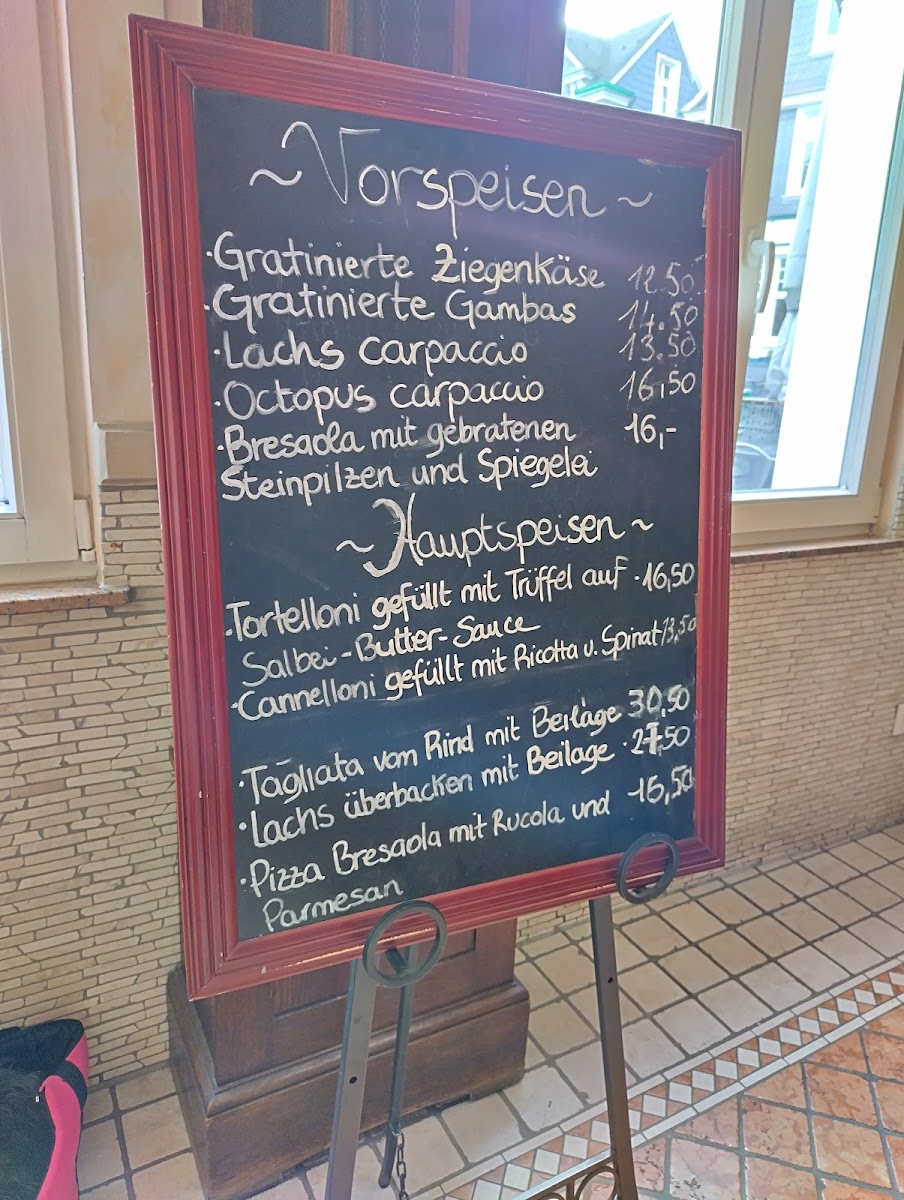 ~ Vorspeisen ~
· Gratinierte Ziegenkäse 12.50
· Gratinierte Gambas 14.50
· Lachs carpaccio 13.50
· Octopus carpaccio 16,50
· Bresaola mit gebratenen 16,-
Steinpilzen und Spiegelei
~ Hauptspeisen ~
· Tortelloni gefüllt mit Trüffel auf · 16,50
Salbei-Butter-Sauce
· Cannelloni gefüllt mit Ricotta u. Spinat 13,50
· Tagliata vom Rind mit Beilage 30,50
· Lachs überbacken mit Beilage · 27,50
· Pizza Bresaola mit Rucola und - 16,50
Parmesan